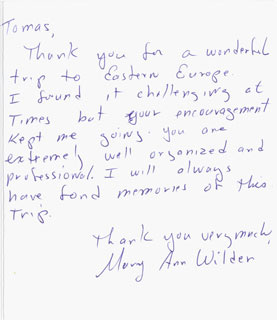 Tomas,
Thank you for a wonderful
trip to Eastern Europe.
I found it challenging at
Times but your encouragement
kept me going. You are
extremely well organized and
professional. I will always
have fond memories of this
Trip.
Thank you very much,
Mary Ann Wilder